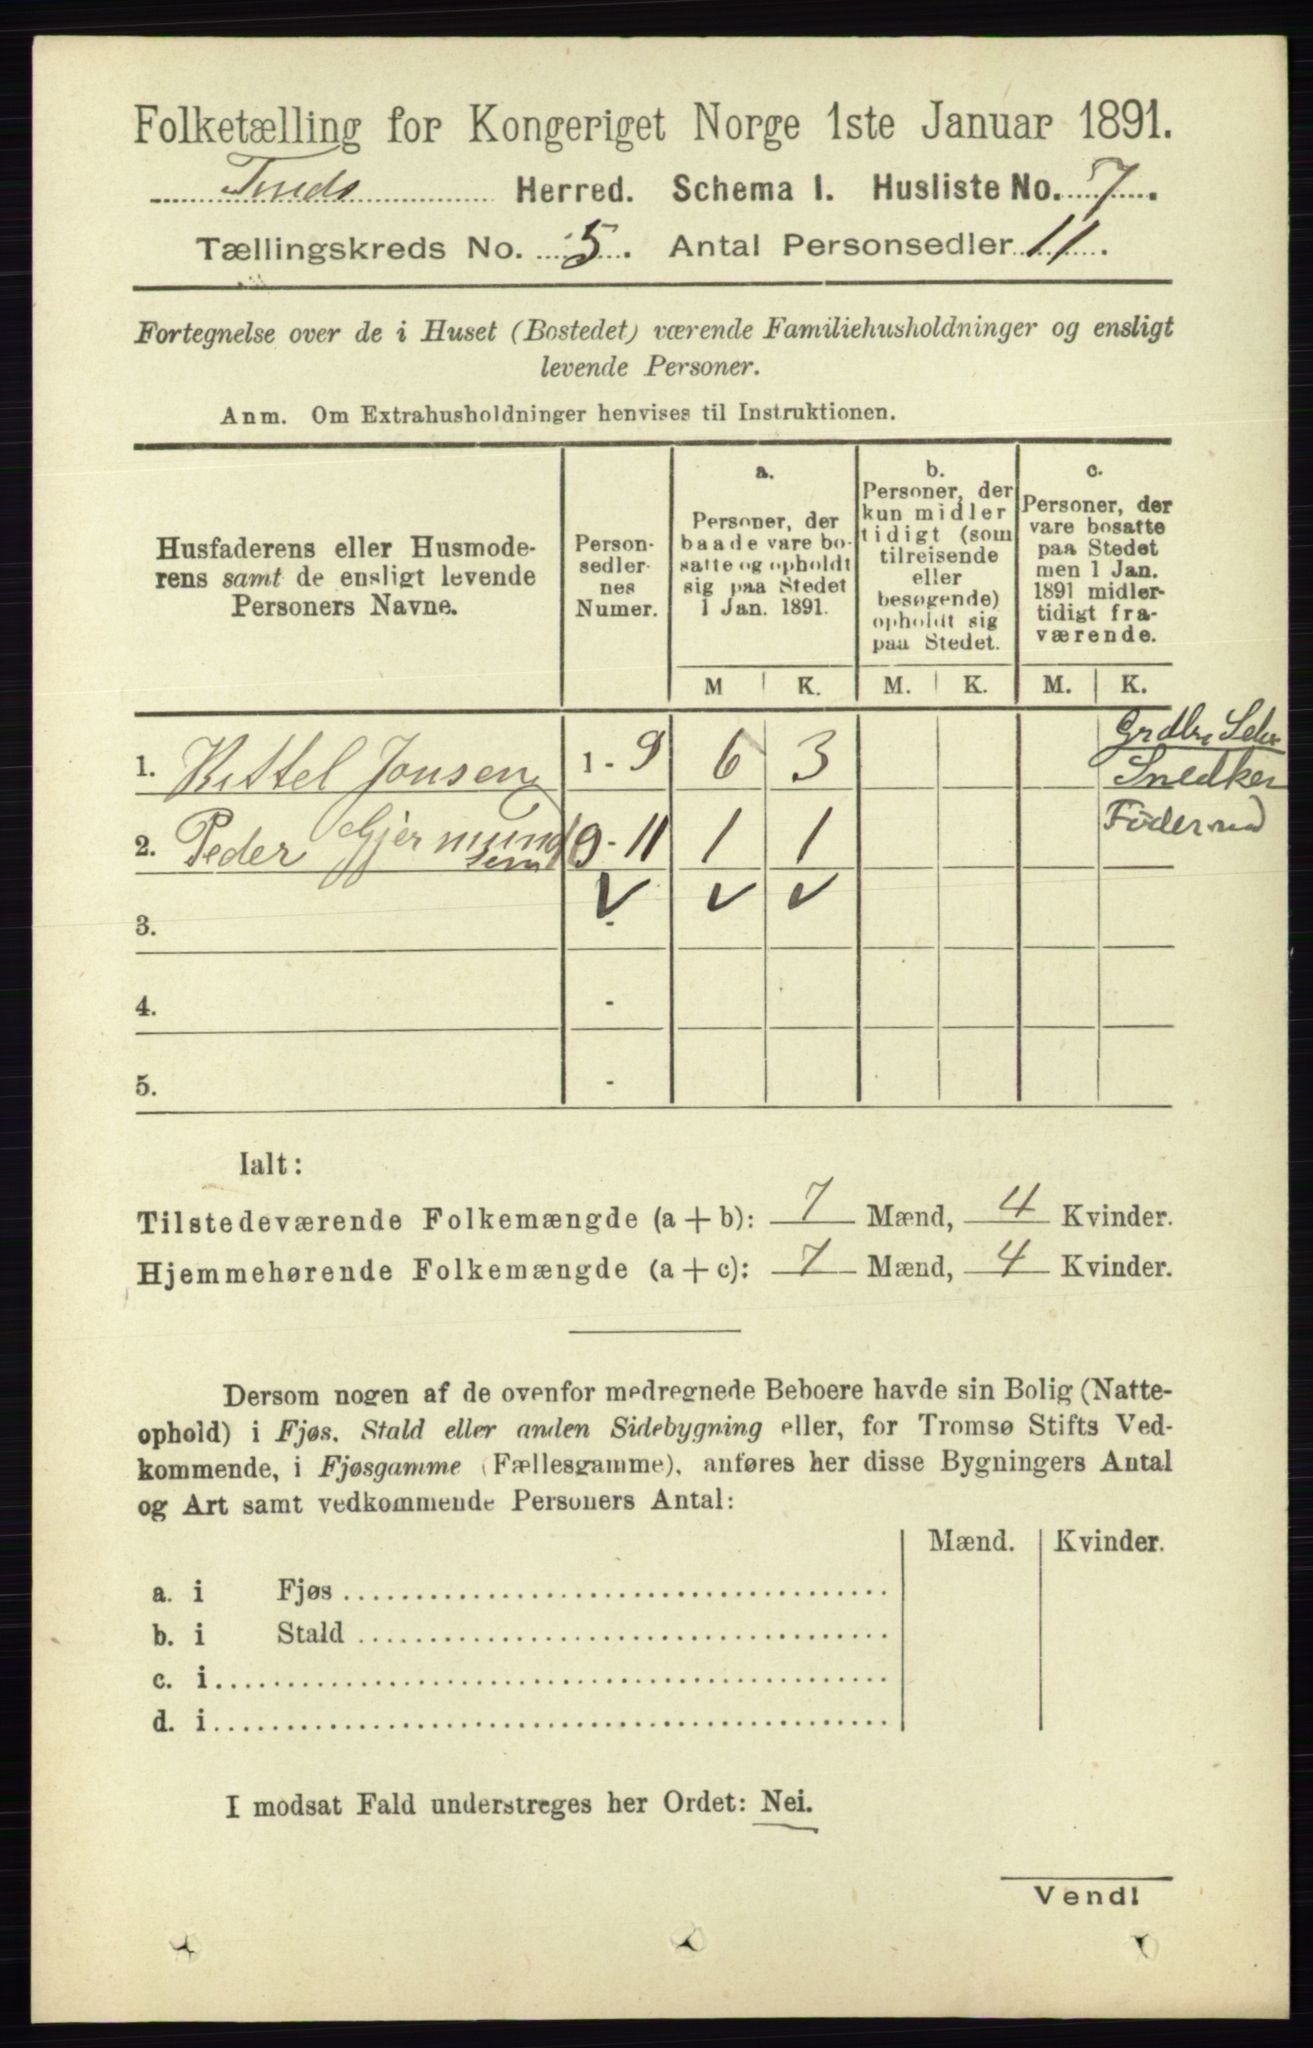 Folketælling for Kongeriget Norge 1ste Januar 1891.
Tinds Herred. Schema I. Husliste No. 7.
Tællingskreds No. 5. Antal Personsedler 11.
Fortegnelse over de i Huset (Bostedet) værende Familiehusholdninger og ensligt
levende Personer.
Anm. Om Extrahusholdninger henvises til Instruktionen.
Husfaderens eller Husmode-
rens samt de ensligt levende
Personers Navne.
Person-
sedler-
nes
Numer.
a.
Personer, der
baade vare bo-
satte og opholdt
sig paa Stedet
1 Jan. 1891.
b.
Personer, der
kun midler
tidigt (som
tilreisende
eller
besøgende)
opholdt sig
paa Stedet.
c.
Personer, der
vare bosatte
paa Stedet
men 1 Jan.
1891 midler-
tidigt fra-
værende.
M K. M. K. M. K.
1. Kittel Jonsen 1 - 9 6 3 Snedker
2. Peder Gjermundsen 9 - 11 1 1 Föderaad
3. -
4. -
5. -
Ialt:
Tilstedeværende Folkemængde (a + b): 7 Mænd, 4 Kvinder.
Hjemmehørende Folkemængde (a + c): 7 Mænd, 4 Kvinder.
Dersom nogen af de ovenfor medregnede Beboere havde sin Bolig (Natte-
ophold) i Fjøs, Stald eller anden Sidebygning eller, for Tromsø Stifts Ved-
kommende, i Fjøsgamme (Fællesgamme), anføres her disse Bygningers Antal
og Art samt vedkommende Personers Antal:
Mænd. Kvinder.
a. i Fjøs
b. i Stald
c. i
d. i
I modsat Fald understreges her Ordet: Nei.
Vend!